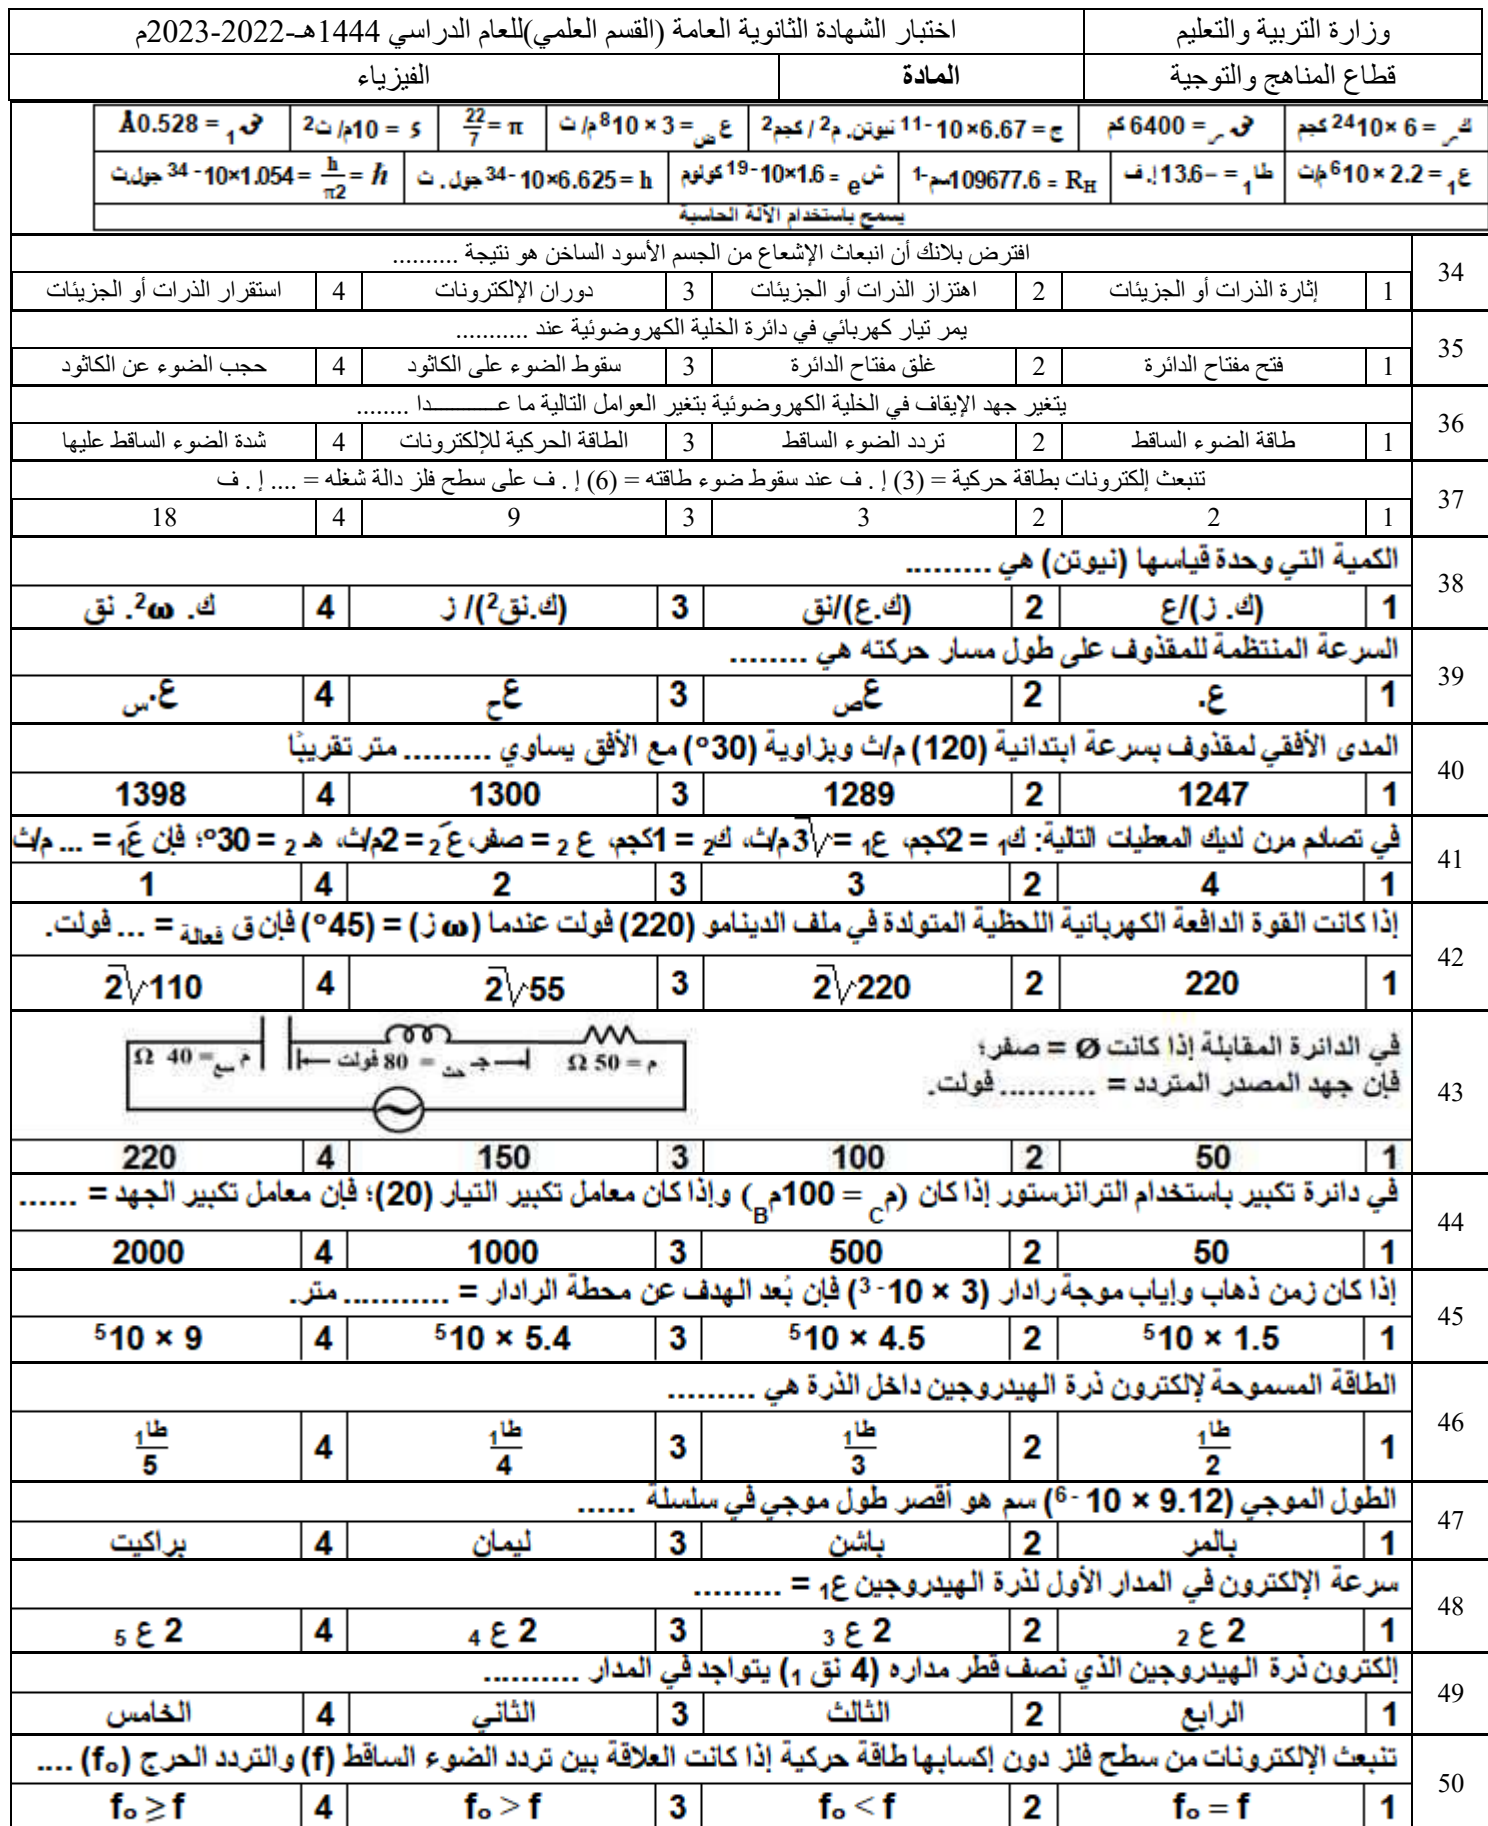 وزارة التربية والتعليم | اختبار الشهادة الثانوية العامة (القسم العلمي)للعام الدراسي 1444هـ-2022-2023م
قطاع المناهج والتوجية | المادة | الفيزياء
ك س = 6 ×10²⁴ كجم | نق س = 6400 كم | ج = 6.67×10⁻¹¹ نيوتن. م² / كجم² | ع ض = 3 × 10⁸ م/ ث | π = 22/7 | ء = 10م/ ث² | نق₁ = 0.528Å
ع₁ = 2.2 × 10⁶ م/ث | طا₁ = –13.6 إ. ف | R_H = 109677.6سم⁻¹ | ش e = 1.6×10⁻¹⁹ كولوم | h = 6.625×10⁻³⁴ جول. ث | ℏ = h/π2 = 1.054×10⁻³⁴ جول.ث
يسمح باستخدام الآلة الحاسبة
34 افترض بلانك أن انبعاث الإشعاع من الجسم الأسود الساخن هو نتيجة ..........
1 إثارة الذرات أو الجزيئات | 2 اهتزاز الذرات أو الجزيئات | 3 دوران الإلكترونات | 4 استقرار الذرات أو الجزيئات
35 يمر تيار كهربائي في دائرة الخلية الكهروضوئية عند ...........
1 فتح مفتاح الدائرة | 2 غلق مفتاح الدائرة | 3 سقوط الضوء على الكاثود | 4 حجب الضوء عن الكاثود
36 يتغير جهد الإيقاف في الخلية الكهروضوئية بتغير العوامل التالية ما عــــــــــدا ........
1 طاقة الضوء الساقط | 2 تردد الضوء الساقط | 3 الطاقة الحركية للإلكترونات | 4 شدة الضوء الساقط عليها
37 تنبعث إلكترونات بطاقة حركية = (3) إ . ف عند سقوط ضوء طاقته = (6) إ . ف على سطح فلز دالة شغله = .... إ . ف
1 2 | 2 3 | 3 9 | 4 18
38 الكمية التي وحدة قياسها (نيوتن) هي .........
1 (ك. ز)/ع | 2 (ك.ع)/نق | 3 (ك.نق²)/ ز | 4 ك. ω². نق
39 السرعة المنتظمة للمقذوف على طول مسار حركته هي ........
1 ع. | 2 ع ص | 3 ع ح | 4 ع. س
40 المدى الأفقي لمقذوف بسرعة ابتدائية (120) م/ث وبزاوية (30°) مع الأفق يساوي ......... متر تقريبًا
1 1247 | 2 1289 | 3 1300 | 4 1398
41 في تصادم مرن لديك المعطيات التالية: ك₁ = 2كجم، ع₁ = √3 م/ث، ك₂ = 1كجم، ع₂ = صفر، عَ₂ = 2م/ث، هـ₂ = 30°؛ فإن عَ₁ = ... م/ث
1 4 | 2 3 | 3 2 | 4 1
42 إذا كانت القوة الدافعة الكهربائية اللحظية المتولدة في ملف الدينامو (220) فولت عندما (ω ز) = (45°) فإن ق فعالة = ... فولت.
1 220 | 2 220√2 | 3 55√2 | 4 110√2
43 في الدائرة المقابلة إذا كانت Ø = صفر؛
فإن جهد المصدر المتردد = ........... فولت.
م = 50 Ω | جـ حث = 80 فولت | م سع = 40 Ω
1 50 | 2 100 | 3 150 | 4 220
44 في دائرة تكبير باستخدام الترانزستور إذا كان (م C = 100م B) وإذا كان معامل تكبير التيار (20)؛ فإن معامل تكبير الجهد = ......
1 50 | 2 500 | 3 1000 | 4 2000
45 إذا كان زمن ذهاب وإياب موجة رادار (3 × 10⁻³) فإن بُعد الهدف عن محطة الرادار = ........... متر.
1 1.5 × 10⁵ | 2 4.5 × 10⁵ | 3 5.4 × 10⁵ | 4 9 × 10⁵
46 الطاقة المسموحة لإلكترون ذرة الهيدروجين داخل الذرة هي .........
1 طا₁/2 | 2 طا₁/3 | 3 طا₁/4 | 4 طا₁/5
47 الطول الموجي (9.12 × 10⁻⁶) سم هو أقصر طول موجي في سلسلة ......
1 بالمر | 2 باشن | 3 ليمان | 4 براكيت
48 سرعة الإلكترون في المدار الأول لذرة الهيدروجين ع₁ = .........
1 2 ع₂ | 2 2 ع₃ | 3 2 ع₄ | 4 2 ع₅
49 إلكترون ذرة الهيدروجين الذي نصف قطر مداره (4 نق₁) يتواجد في المدار ..........
1 الرابع | 2 الثالث | 3 الثاني | 4 الخامس
50 تنبعث الإلكترونات من سطح فلز دون إكسابها طاقة حركية إذا كانت العلاقة بين تردد الضوء الساقط (f) والتردد الحرج (f₀) ....
1 f₀ = f | 2 f₀ < f | 3 f₀ > f | 4 f₀ ≥ f